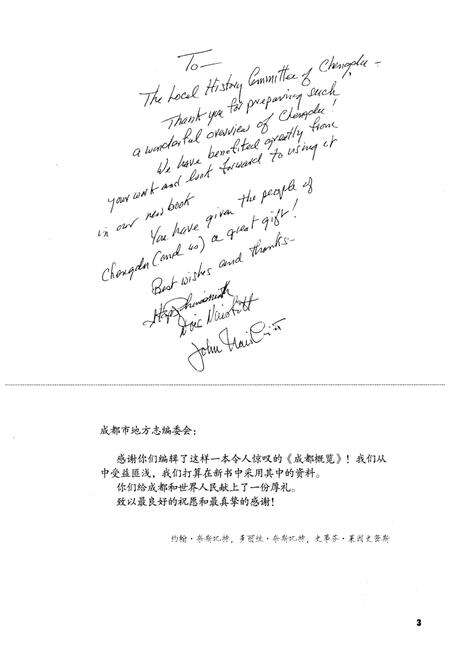 To—
The Local History Committee of Chengdu –
Thank you for preparing such
a wonderful overview of Chengdu!
We have benefited greatly from
your work and look forward to using it
in our new book
You have given the people of
Chengdu (and us) a great gift!
Best wishes and thanks—
Doris Naisbitt
John Naisbitt
成都市地方志编委会：
感谢你们编辑了这样一本令人惊叹的《成都概览》！我们从
中受益匪浅，我们打算在新书中采用其中的资料。
你们给成都和世界人民献上了一份厚礼。
致以最良好的祝愿和最真挚的感谢！
约翰·奈斯比特，多丽丝·奈斯比特，史蒂芬·莱因史密斯
3